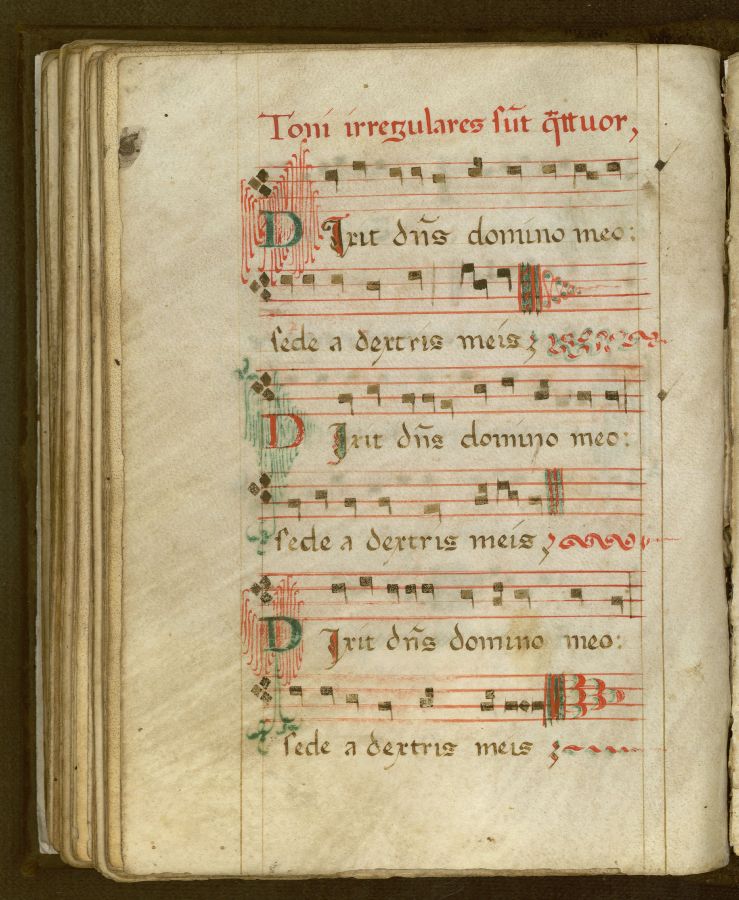 Toni irregulares sūt q̄ttuor,
DIxit dn̄s domino meo:
sede a dextris meis;
DIxit dn̄s domino meo:
sede a dextris meis;
DIxit dn̄s domino meo:
sede a dextris meis;